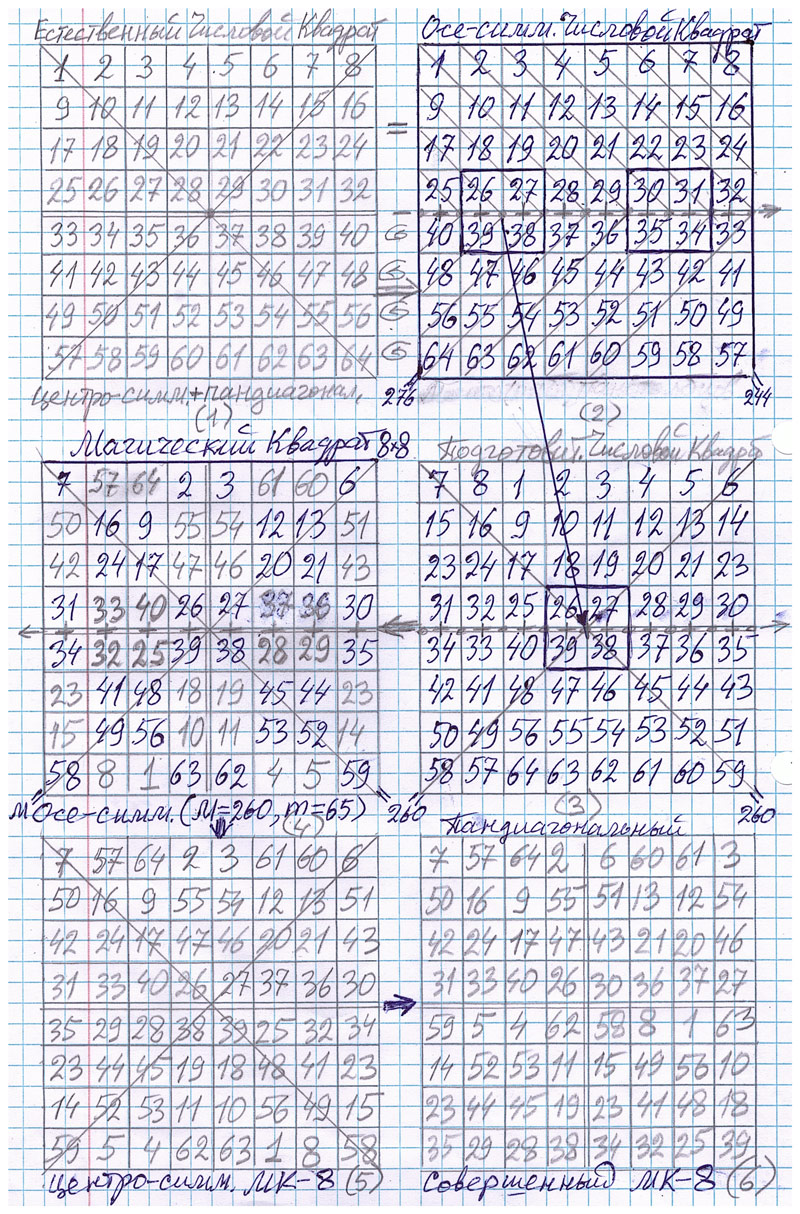 Естественный Числовой Квадрат
1 2 3 4 5 6 7 8
9 10 11 12 13 14 15 16
17 18 19 20 21 22 23 24
25 26 27 28 29 30 31 32
33 34 35 36 37 38 39 40
41 42 43 44 45 46 47 48
49 50 51 52 53 54 55 56
57 58 59 60 61 62 63 64
центро-симм.+пандиагонал.
(1)
=
Осе-симм. Числовой Квадрат
1 2 3 4 5 6 7 8
9 10 11 12 13 14 15 16
17 18 19 20 21 22 23 24
25 26 27 28 29 30 31 32
40 39 38 37 36 35 34 33
48 47 46 45 44 43 42 41
56 55 54 53 52 51 50 49
64 63 62 61 60 59 58 57
276 244
(2)
Магический Квадрат 8×8
7 57 64 2 3 61 60 6
50 16 9 55 54 12 13 51
42 24 17 47 46 20 21 43
31 33 40 26 27 37 36 30
34 32 25 39 38 28 29 35
23 41 48 18 19 45 44 23
15 49 56 10 11 53 52 14
58 8 1 63 62 4 5 59
М Осе-симм. (М=260, m=65)
(4)
Подготовит. Числовой Квадрат
7 8 1 2 3 4 5 6
15 16 9 10 11 12 13 14
23 24 17 18 19 20 21 23
31 32 25 26 27 28 29 30
34 33 40 39 38 37 36 35
42 41 48 47 46 45 44 43
50 49 56 55 54 53 52 51
58 57 64 63 62 61 60 59
260 260
(3)
7 57 64 2 3 61 60 6
50 16 9 55 54 12 13 51
42 24 17 47 46 20 21 43
31 33 40 26 27 37 36 30
35 29 28 38 39 25 32 34
23 44 45 19 18 48 41 23
14 52 53 11 10 56 49 15
59 5 4 62 63 1 8 58
центро-симм. МК-8 (5)
Пандиагональный
7 57 64 2 6 60 61 3
50 16 9 55 51 13 12 54
42 24 17 47 43 21 20 46
31 33 40 26 30 36 37 27
59 5 4 62 58 8 1 63
14 52 53 11 15 49 56 10
23 44 45 19 23 41 48 18
35 29 28 38 34 32 25 39
Совершенный МК-8 (6)